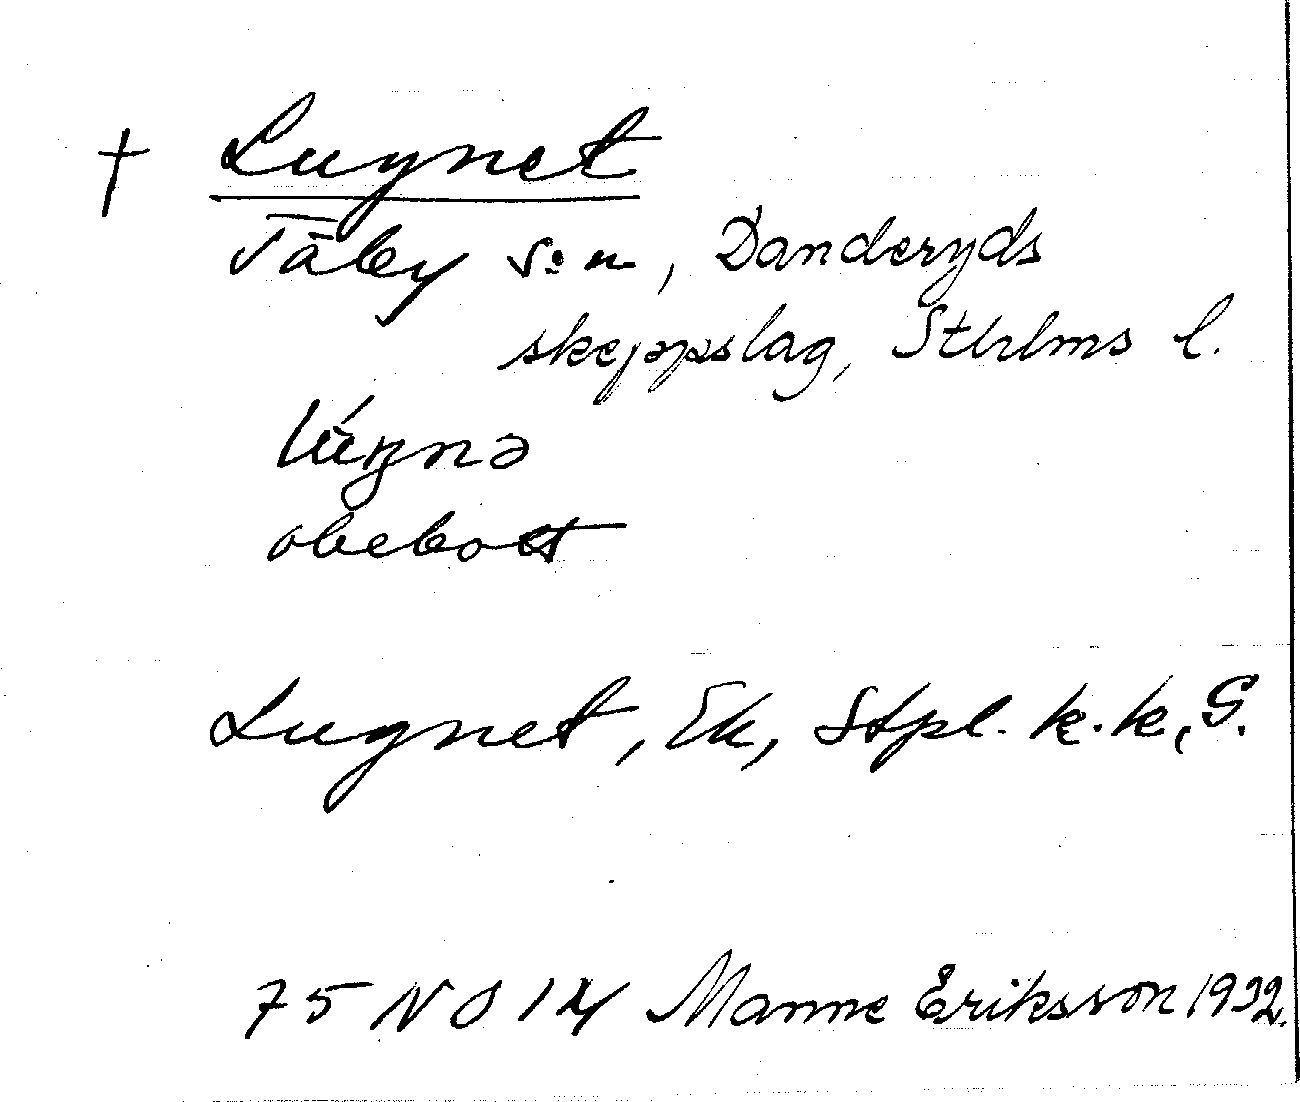 † Lugnet
Täby s:n, Danderyds
skeppslag, Sthlms l.
obebott
Lugnet, Ek, Stpl. k.k, G.
75 NO 14 Manne Eriksson 1932.